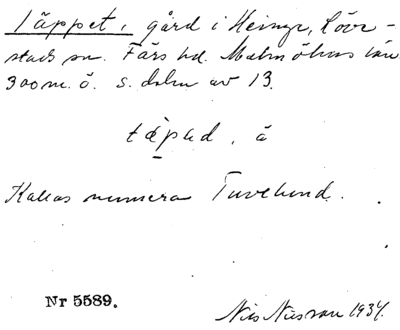 Täppet, gård i Heinge, Löv-
stads sn. Färs hd. Malmöhus län
300 m. ö. s. delen av 13.
täpəd, å
Kallas numera Tuvelund.
Nr 5589.
Nils Nilsson 1934.